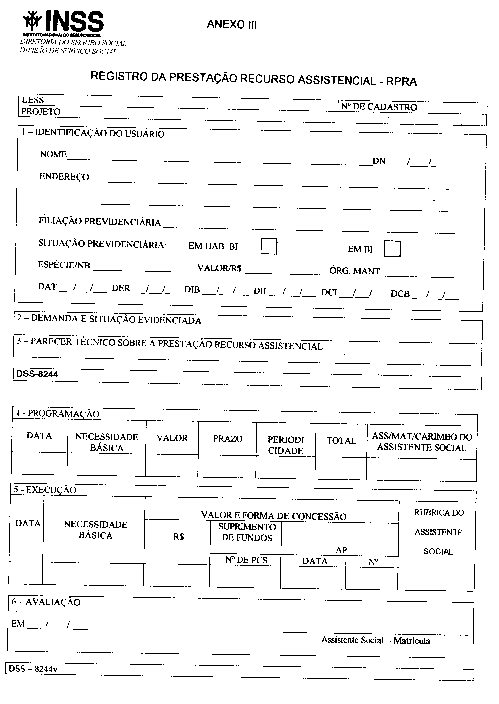 INSS
INSTITUTO NACIONAL DO SEGURO SOCIAL
DIRETORIA DO SEGURO SOCIAL
DIVISÃO DE SERVIÇO SOCIAL
ANEXO III
REGISTRO DA PRESTAÇÃO RECURSO ASSISTENCIAL - RPRA
ULSS Nº DE CADASTRO
PROJETO
1 – IDENTIFICAÇÃO DO USUÁRIO
NOME DN / /
ENDEREÇO
FILIAÇÃO PREVIDENCIÁRIA
SITUAÇÃO PREVIDENCIÁRIA: EM HAB. BI EM BI
ESPÉCIE/NB VALOR/R$ ÓRG. MANT.
DAT / / DER / / DIB / / DII / / DCI / / DCB / /
2 – DEMANDA E SITUAÇÃO EVIDENCIADA
3 – PARECER TÉCNICO SOBRE A PRESTAÇÃO RECURSO ASSISTENCIAL
DSS-8244
4 - PROGRAMAÇÃO
DATA NECESSIDADE BÁSICA VALOR PRAZO PERIODI CIDADE TOTAL ASS/MAT/CARIMBO DO ASSISTENTE SOCIAL
5 - EXECUÇÃO
DATA NECESSIDADE BÁSICA VALOR E FORMA DE CONCESSÃO RUBRICA DO ASSISTENTE SOCIAL
R$ SUPRIMENTO DE FUNDOS AP
Nº DE PCS DATA Nº
6 - AVALIAÇÃO
EM / /
Assistente Social - Matrícula
DSS – 8244v